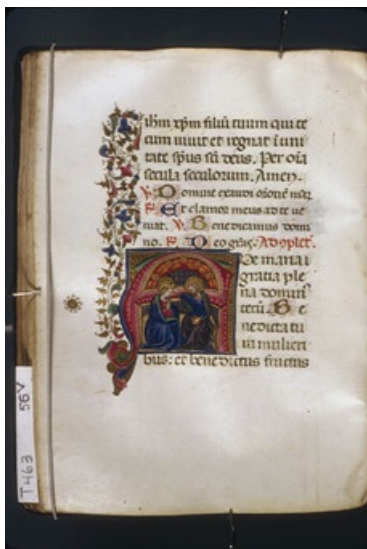 ihm xpm filiu tuum qui te
cum vivit et regnat i uni
tate spus sci deus. Per oia
secula seculorum. Amen.
V. Domine exaudi orone mea
R. Et clamor meus ad te ue
niat. V. Benedicamus domi
no. R. Deo gras. Ad oplet.
Ue maria i
gratia ple
na domin
tecu. Be
nedicta tu
in mulieri
bus: et benedictus fructus
T463 56V